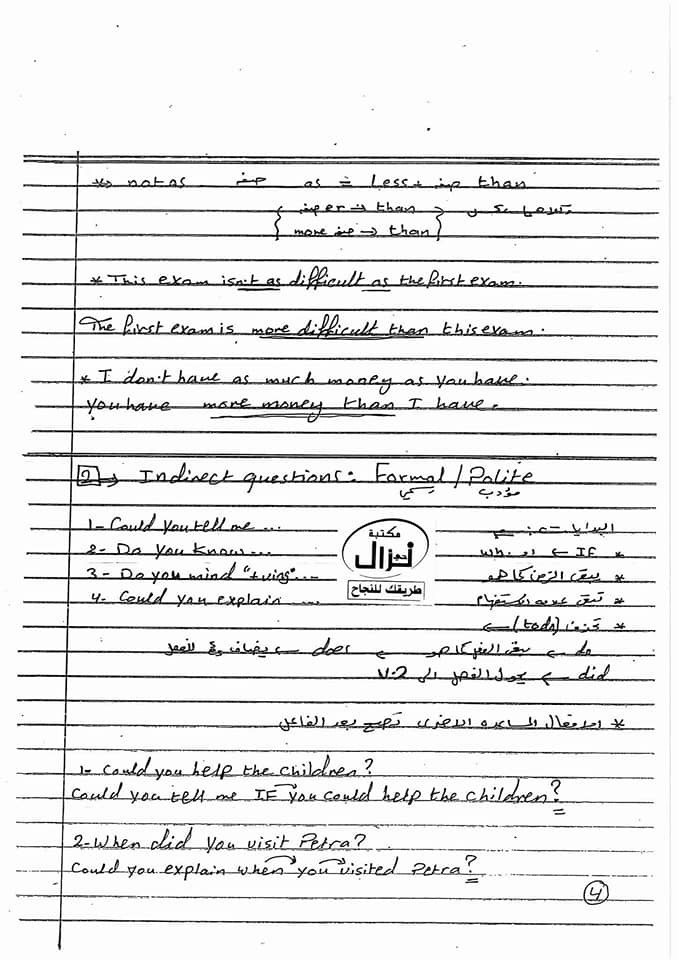 *→ not as صفة as = less + صفة than
{ صفة er → than } كلاهما عكس
{ more صفة → than }
* This exam isn't as difficult as the first exam.
The first exam is more difficult than this exam.
* I don't have as much money as you have.
you have more money than I have.
2 → Indirect questions: Formal / Polite
رسمي مؤدب
1- Could you tell me ... البدايات
2- Do you know... * IF ← او wh.
3- Do you mind "+ving"... * يبقى الزمن كما هو
4- Could you explain .... * تبقى علامة الاستفهام
مكتبة
نزال
طريقك للنجاح
* تحذف (to do) ←
do ← يبقى الفعل كما هو ← does ← يضاف s للفعل
did ← يحول الفعل الى V.2
* الافعال المساعدة الاخرى تصبح بعد الفاعل
1- Could you help the children?
Could you tell me IF you could help the children?
2- When did you visit Petra?
Could you explain when you visited Petra?
4